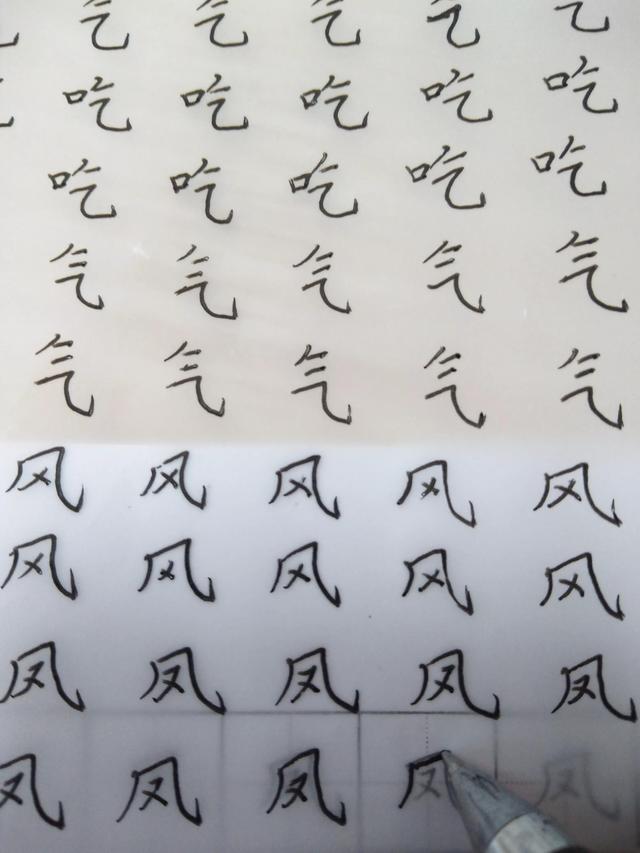 乞 乞 乞 乞 乞
吃 吃 吃 吃 吃
吃 吃 吃 吃 吃
气 气 气 气 气
气 气 气 气 气
风 风 风 风 风
风 风 风 风 风
凤 凤 凤 凤 凤
凤 凤 凤 凤 凤